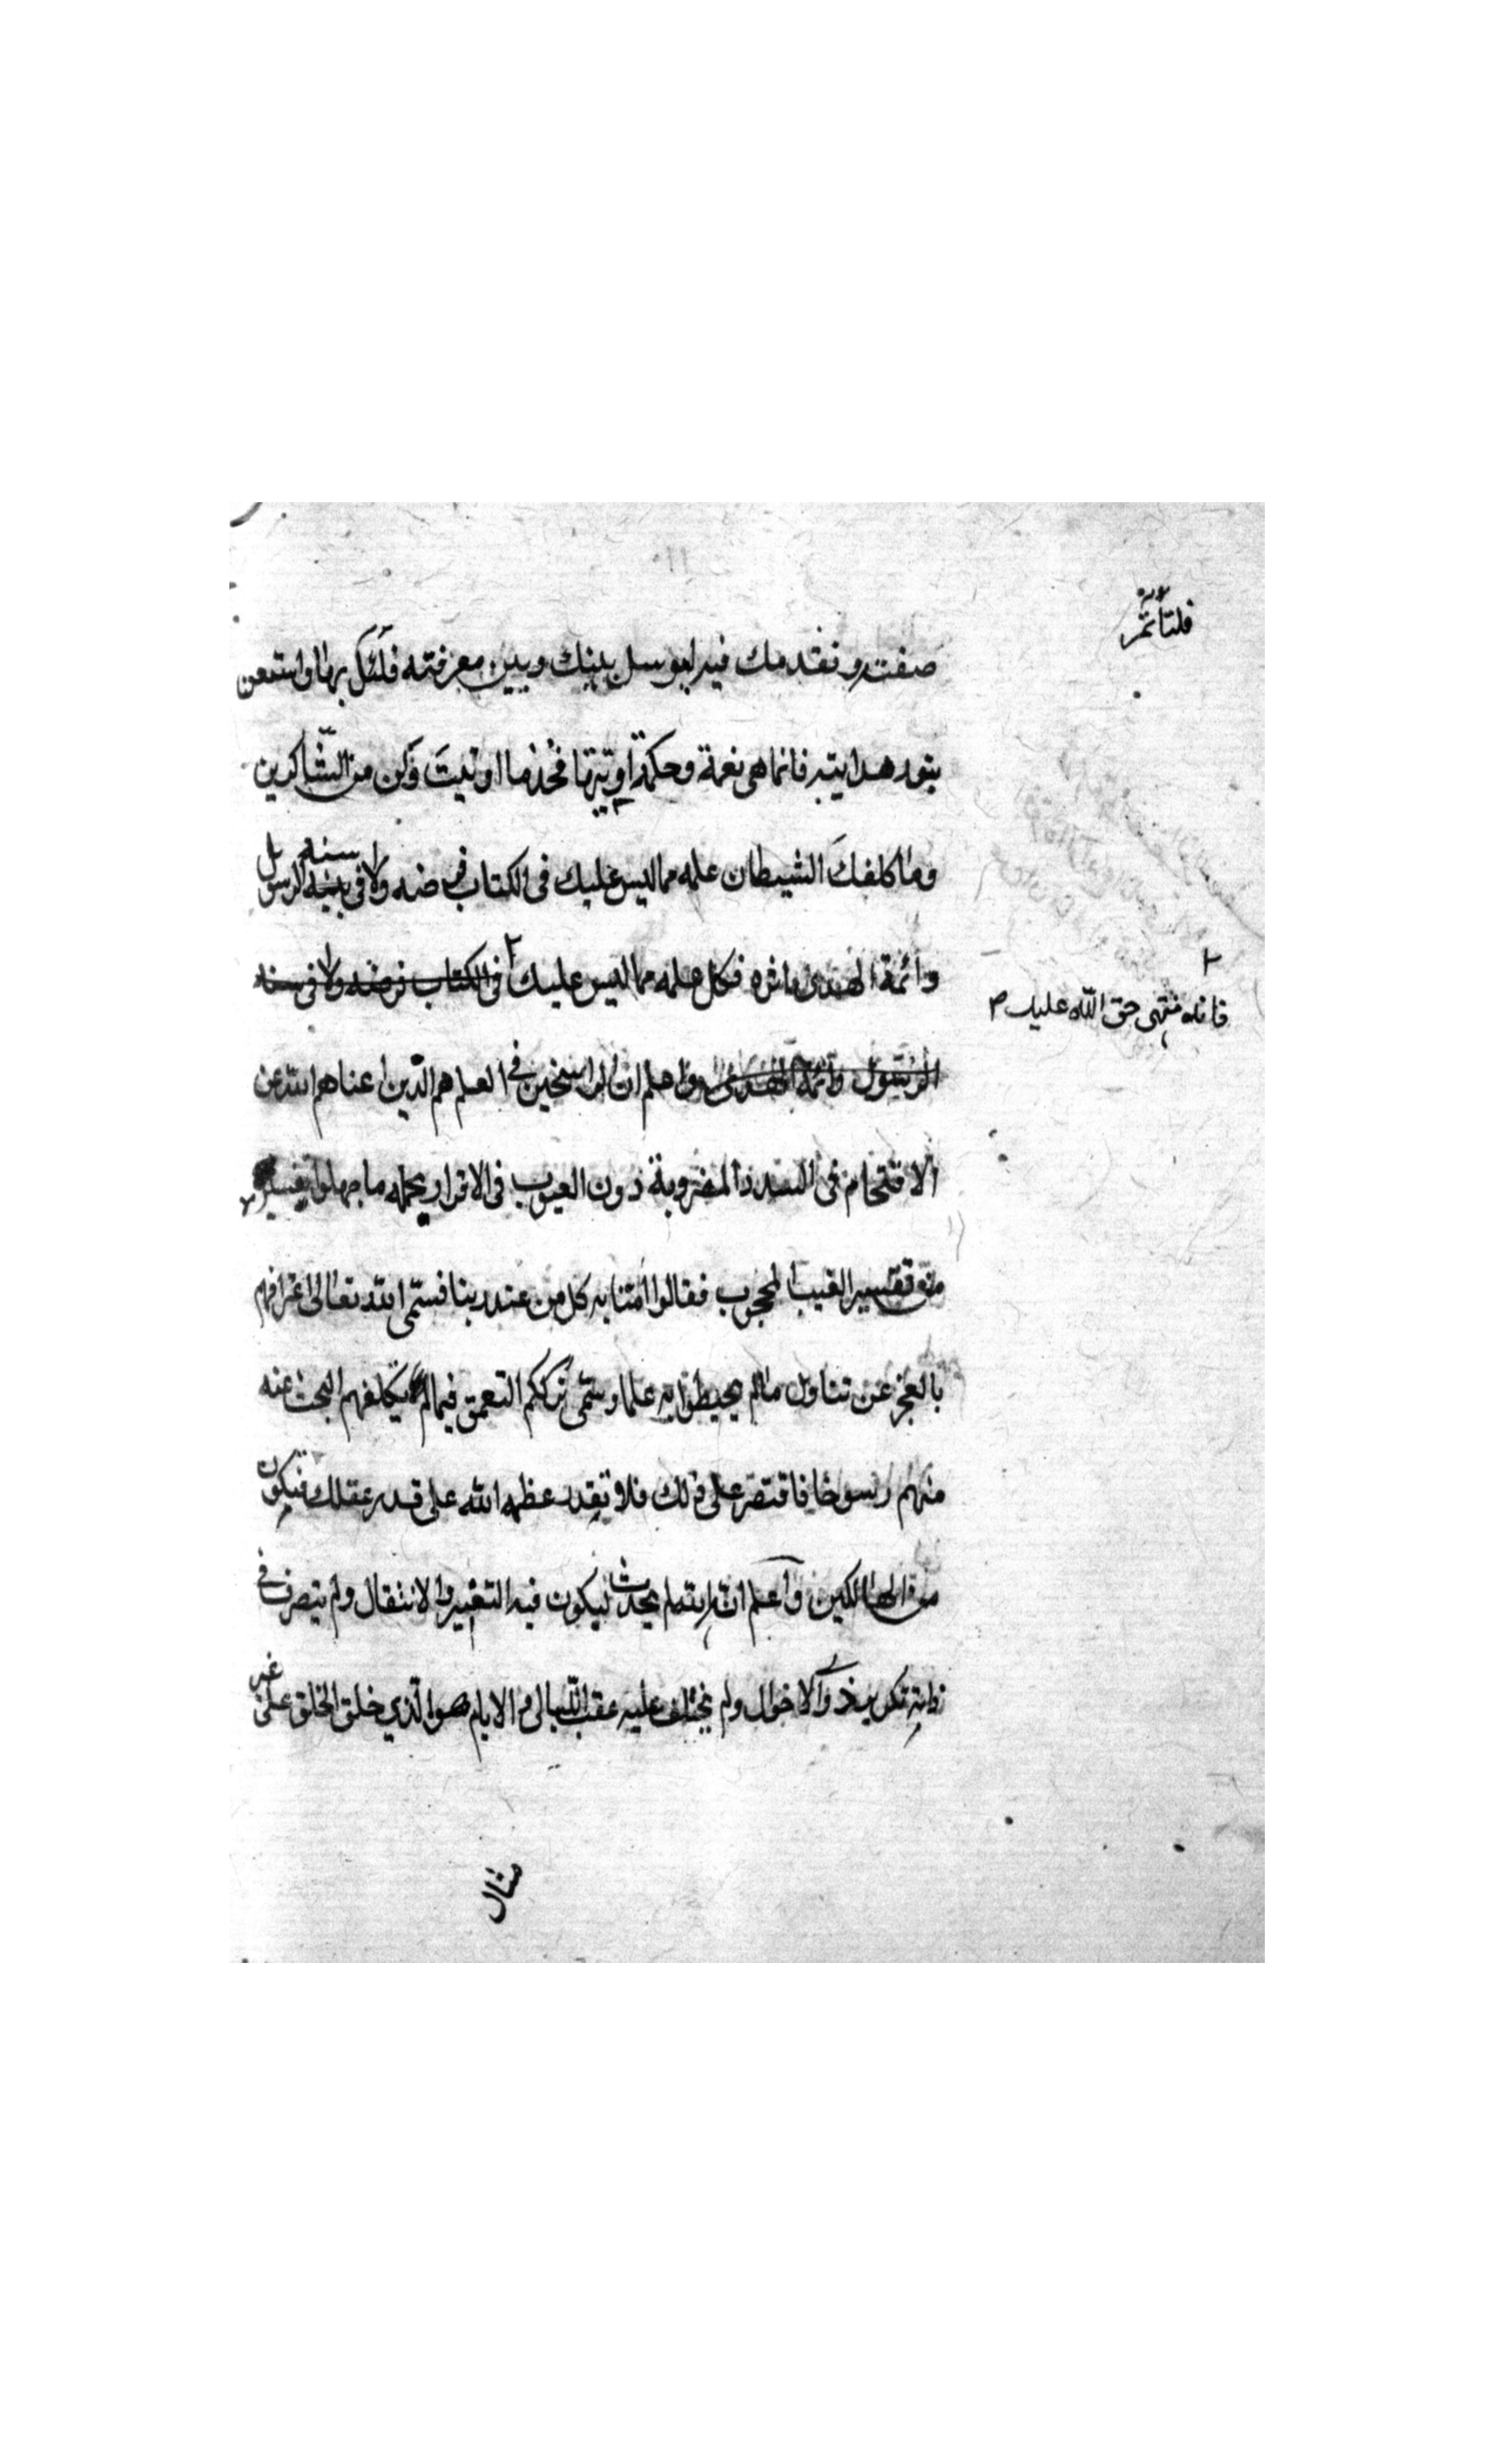 فلتأتمّ
صفته وتقدمك فيه الرسل بينك وبين معرفته فلتكل بها واستعن
بنور هدايته فانما هى نعمة وحكمة اوتيتها فخذ ما اوتيت وكن من الشاكرين
وما كلفك الشيطان علمه مما ليس عليك فى الكتاب فرضه ولا فى سنة الرسل
وائمة الهدى اثره فكل علمه مما ليس عليك ٢ فى الكتاب فرضه ولا فى سنة
٢
فانه منتهى حق الله عليك
الرسول وائمة الهدى واعلم ان الراسخين فى العلم هم الذين اغناهم الله عن
الاقتحام فى السدد المضروبة دون الغيوب فى الاقرار بجمله ما جهلوا
من تفسير الغيب المحجوب فقالوا امنا به كل من عند ربنا فسمى الله تعالى اعترافهم
بالعجز عن تناول مالم يحيطوا به علما وسمى تركهم التعمق فيما لم يكلفهم البحث عنه
منهم رسوخا فاقتصر على ذلك فلا تقدر عظمه الله على قدر عقلك فتكون
من الهالكين واعلم ان الله لم يحدث فيكون فيه التغيير والانتقال ولم يتصرف فى
ذاته بكرور الاحوال ولم يختلف عليه عقب الليالى والايام هو الذي خلق الخلق على غير
مثال